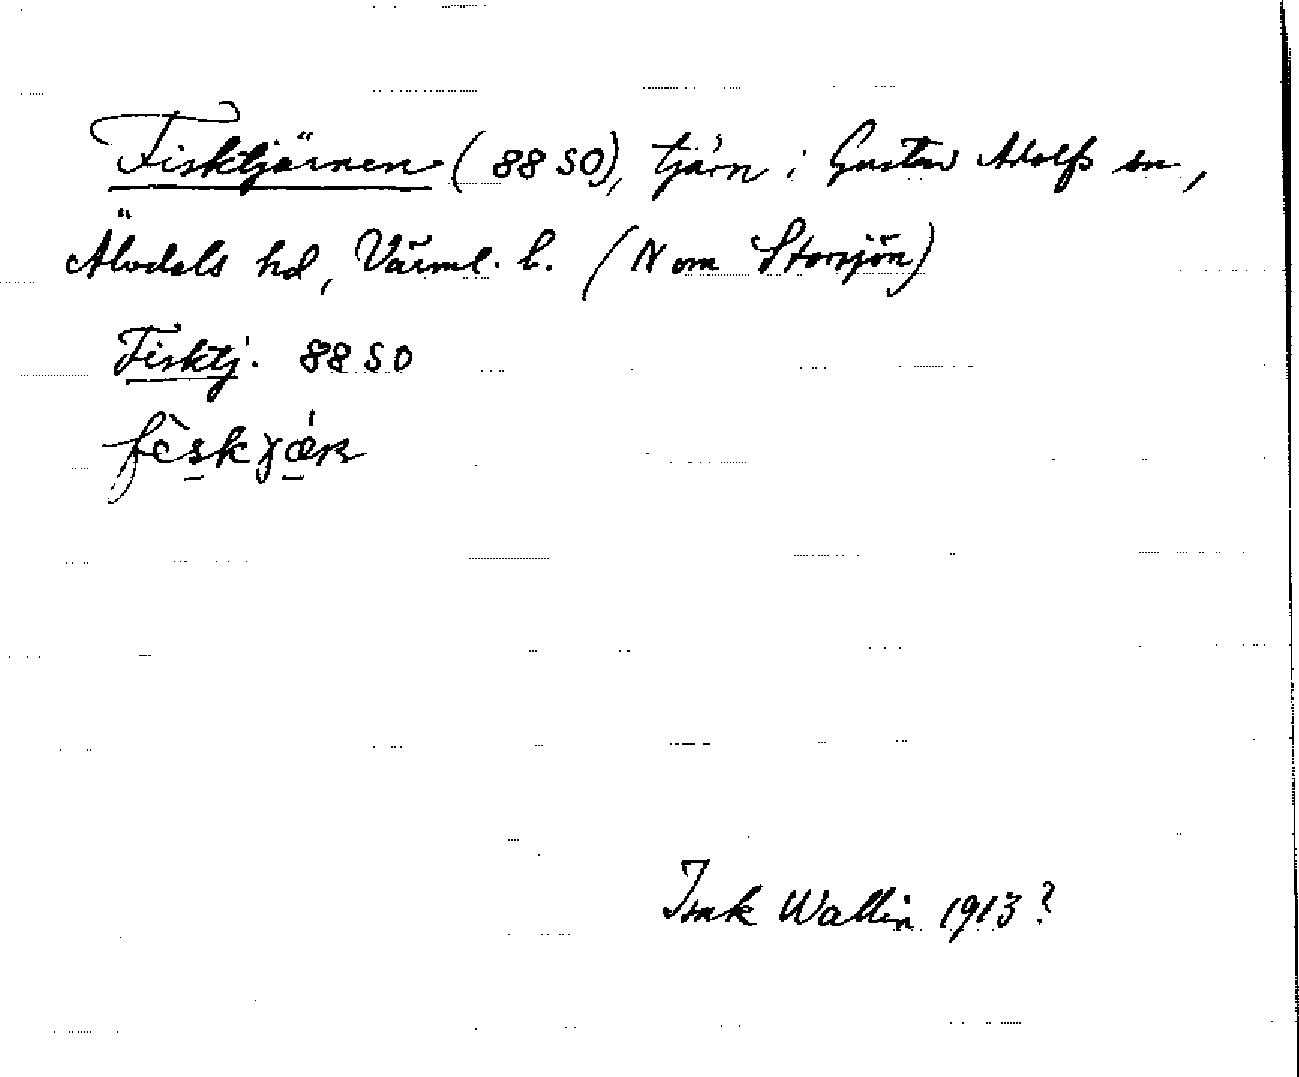 Fisktjärnen (88 SO), tjärn i Gustav Adolfs sn,
Älvdals hd, Värml. l. (N om Storsjön)
Fisktj. 88 SO
Isak Wallin 1913?